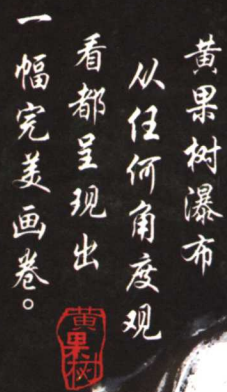 黄果树瀑布
从任何角度观
看都呈现出
一幅完美画卷。
黄果树